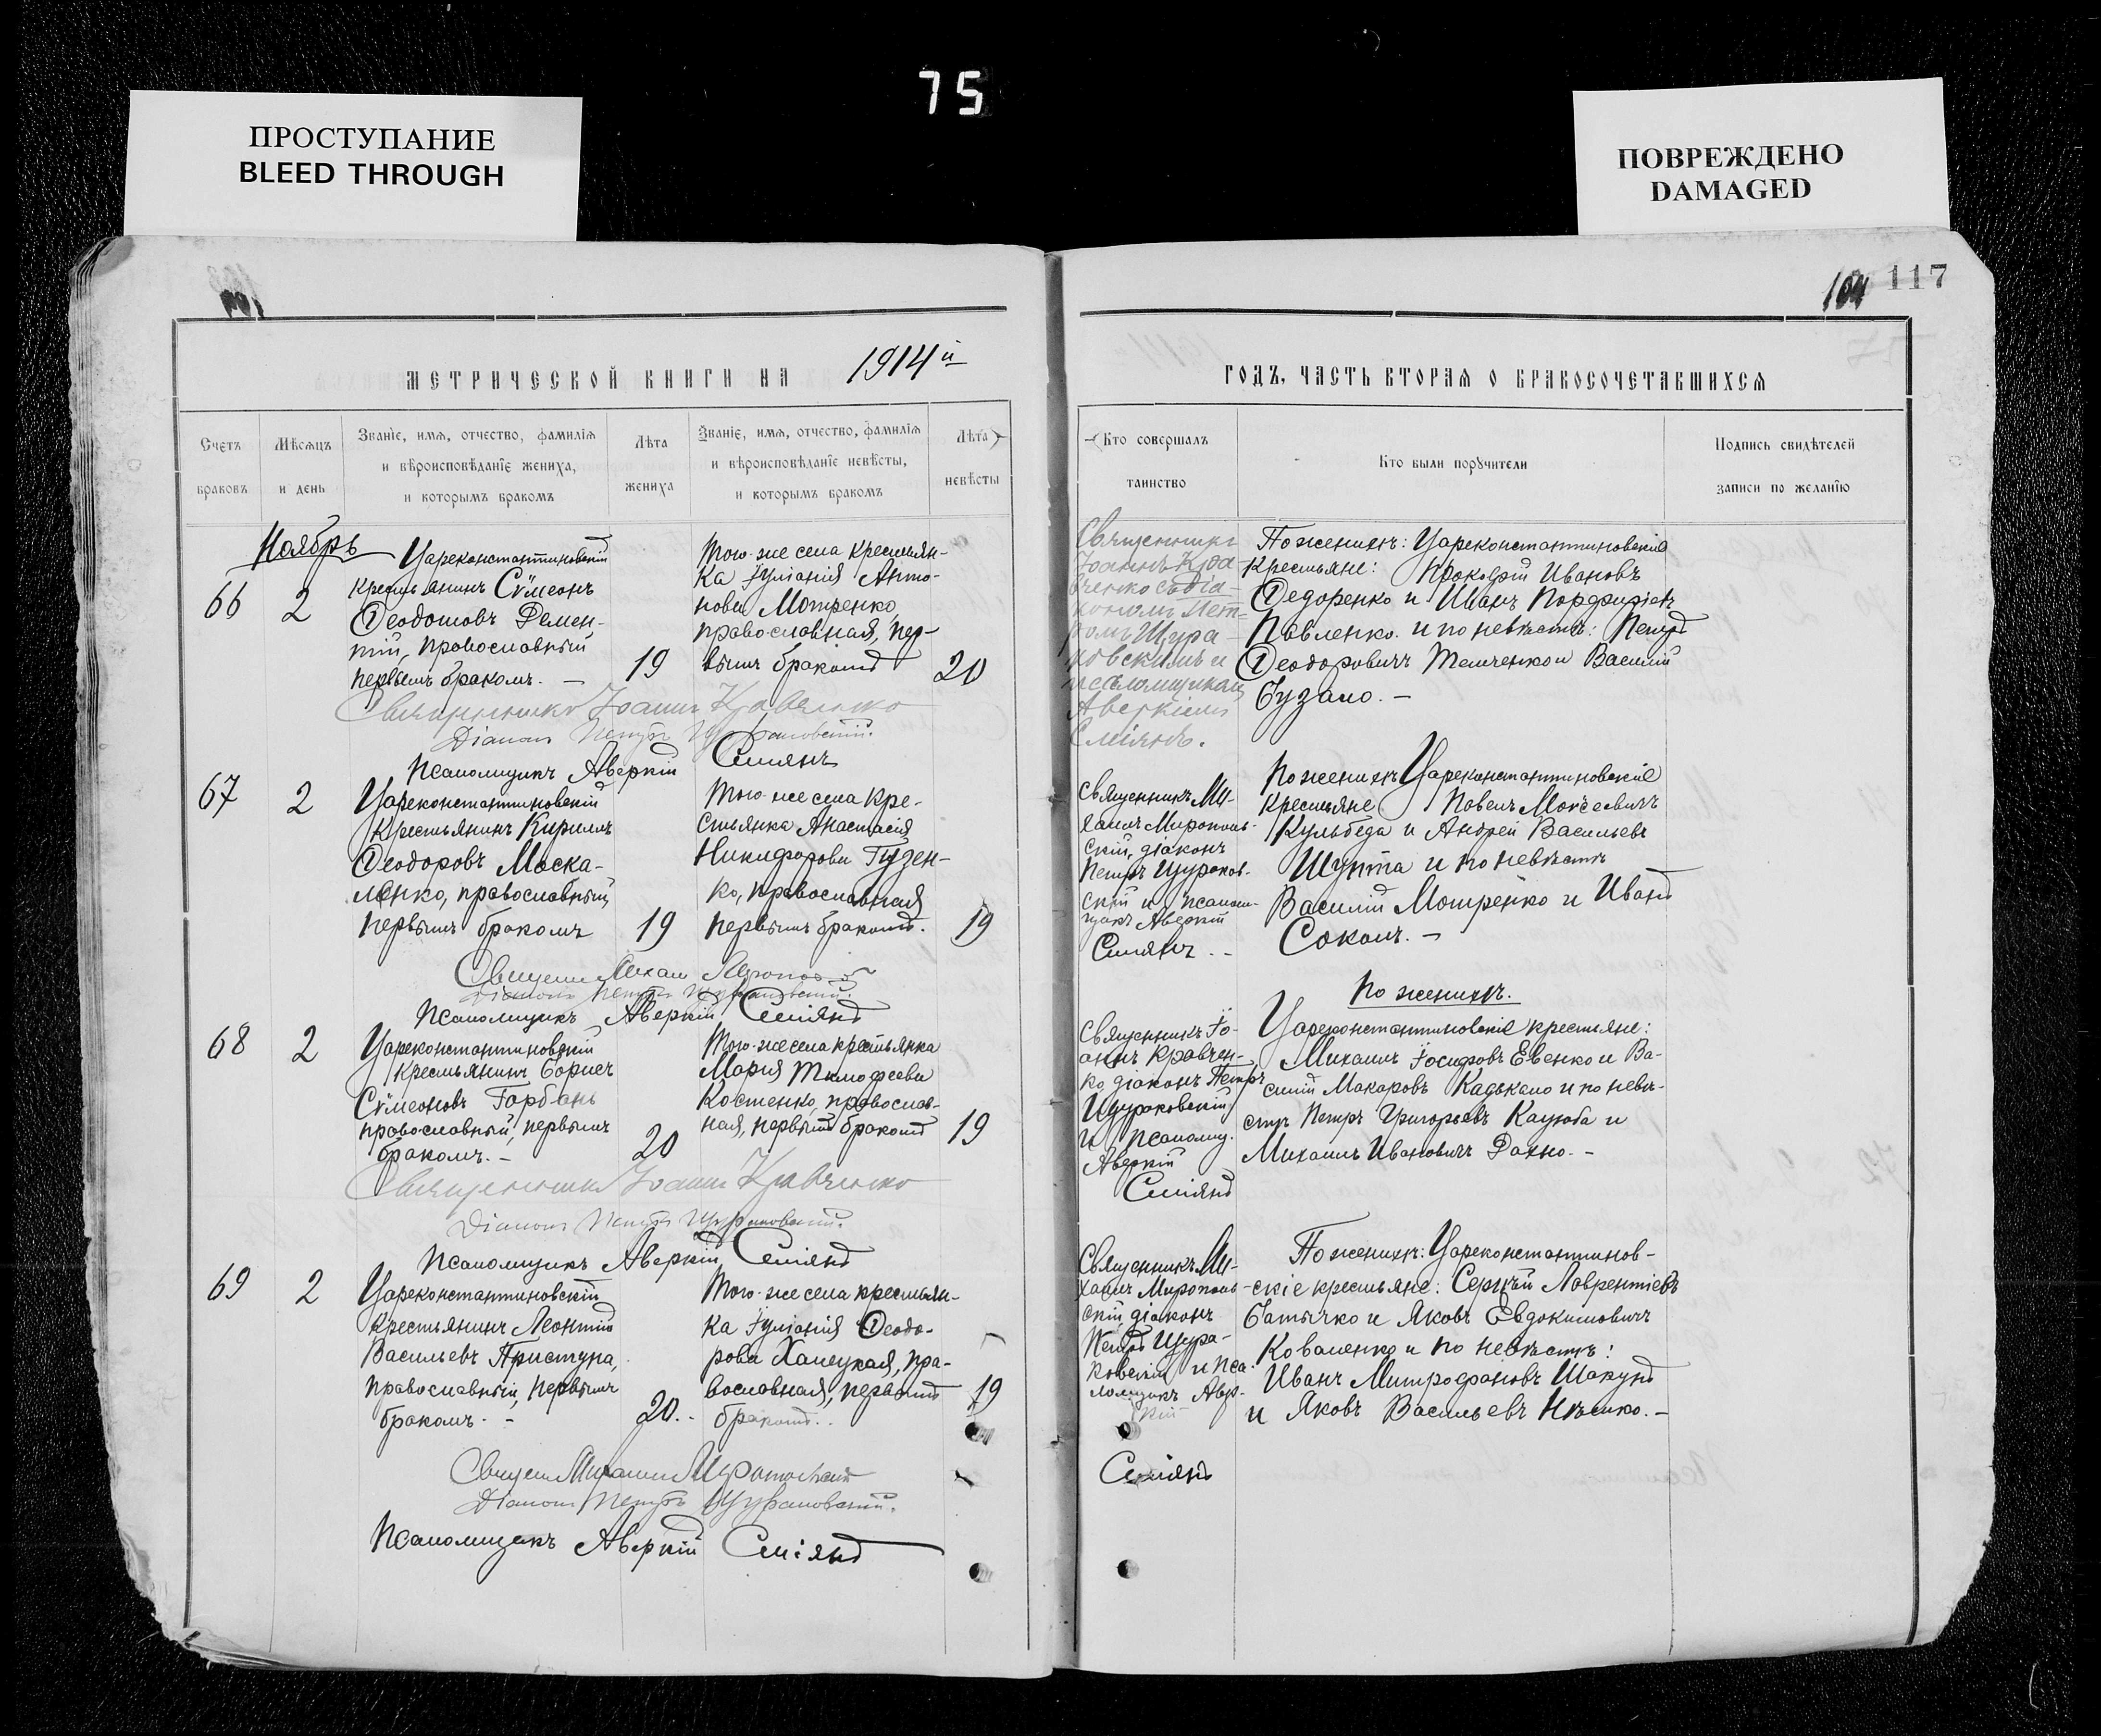 75
ПРОСТУПАНИЕ
BLEED THROUGH
ПОВРЕЖДЕНО
DAMAGED
104 117
МЕТРИЧЕСКОЙ КНИГИ НА 1914й
ГОДЪ, ЧАСТЬ ВТОРАЯ О БРАКОСОЧЕТАВШИХСЯ
Счетъ браковъ
Мѣсяцъ и день
Званіе, имя, отчество, фамилія
и вѣроисповѣданіе жениха,
и которымъ бракомъ
Лѣта жениха
Званіе, имя, отчество, фамилія
и вѣроисповѣданіе невѣсты,
и которымъ бракомъ
Лѣта невѣсты
Кто совершалъ
таинство
Кто были поручители
Подпись свидѣтелей
записи по желанію
Ноябрь
66
2
Цареконстантиновскій
крестьянинъ Сѵмеонъ
Ѳеодотовъ Демен-
тій, православный
первымъ бракомъ. —
19
Того-же села крестьян-
ка Іуліанія Анто-
нова Мотренко,
православная, пер-
вымъ бракомъ
20
Священникъ
Іоаннъ Крав-
ченко съ діа-
кономъ Пет-
ромъ Щура-
ковскимъ и
псаломщикомъ
Аверкіемъ
Сміянъ.
По женихѣ: Цареконстантиновскіе
крестьяне: Прокофій Ивановъ
Ѳедоренко и Иванъ Порфиріевъ
Павленко и по невѣстѣ: Петръ
Ѳеодоровичъ Темченко и Василій
Бузало. —
Священникъ Іоаннъ Кравченко
Діаконъ Петръ Щураковскій.
Псаломщикъ Аверкій Сміянъ
67
2
Цареконстантиновскій
крестьянинъ Кириллъ
Ѳеодоровъ Моска-
ленко, православный,
первымъ бракомъ
19
Того-же села кре-
стьянка Анастасія
Никифорова Гузен-
ко, православная
первымъ бракомъ.
19
Священникъ Ми-
хаилъ Мирополь-
скій, діаконъ
Петръ Щураков-
скій и псалом-
щикъ Аверкій
Сміянъ. -
По женихѣ Цареконстантиновскіе
крестьяне Павелъ Моѵсеевичъ
Кульбеда и Андрей Васильевъ
Шупта и по невѣстѣ
Василій Мотренко и Иванъ
Соколъ. —
Діаконъ Петръ Щураковскій.
Псаломщикъ Аверкій Сміянъ
68
2
Цареконстантиновскій
крестьянинъ Борисъ
Сѵмеоновъ Горбань
православный, первымъ
бракомъ. -
20
Того-же села крестьянка
Марія Тимофеева
Костенко, православ-
ная, первымъ бракомъ
19
Священникъ Іо-
аннъ Кравчен-
ко, діаконъ Петръ
Щураковскій
и псаломщ.
Аверкій
Сміянъ
По женихѣ.
Цареконстантиновскіе крестьяне:
Михаилъ Іосифовъ Евенко и Ва-
силій Макаровъ Кадькало и по невѣ-
стѣ Петръ Григорьевъ Кацюба и
Михаилъ Ивановичъ Рахно. -
Священникъ Іоаннъ Кравченко
Діаконъ Петръ Щураковскій.
Псаломщикъ Аверкій Сміянъ
69
2
Цареконстантиновскій
крестьянинъ Леонтій
Васильевъ Приступа,
православный, первымъ
бракомъ. -
20. -
Того-же села крестьян-
ка Іуліанія Ѳеодо-
рова Халецкая, пра-
вославная, первымъ
бракомъ.
19
Священникъ Ми-
хаилъ Мирополь-
скій, діаконъ
Петръ Щура-
ковскій и пса-
ломщикъ Авер-
кій
Сміянъ
По женихѣ: Цареконстантинов-
скіе крестьяне: Сергѣй Лаврентіевъ
Батычко и Яковъ Евдокимовичъ
Коваленко и по невѣстѣ:
Иванъ Митрофановъ Шакунъ
и Яковъ Васильевъ Нѣшко. —
Священ Михаилъ Миропольскій
Діаконъ Петръ Щураковскій.
Псаломщикъ Аверкій Сміянъ